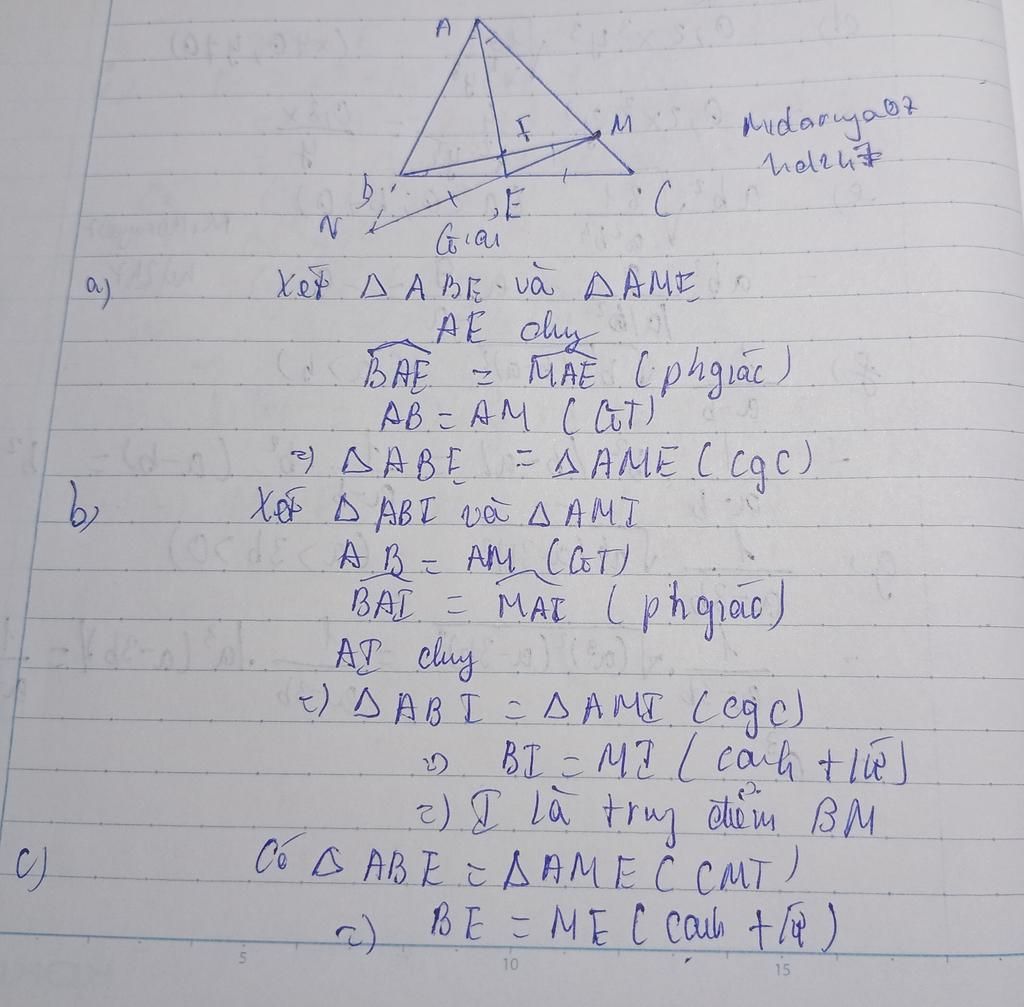 A
I
M
B
E
C
N
Midoruya07
hd247
Giải
a) Xét Δ ABE và Δ AME
AE chung
BAE = MAE (phgiác)
AB = AM (GT)
=> Δ ABE = Δ AME (cgc)
b) Xét Δ ABI và Δ AMI
AB = AM (GT)
BAI = MAI (phgiác)
AI chung
=> Δ ABI = Δ AMI (cgc)
=> BI = MI (cạnh tứ)
=> I là trung điểm BM
c) Có Δ ABE = Δ AME (CMT)
=> BE = ME (cạnh tứ)
5 10 15